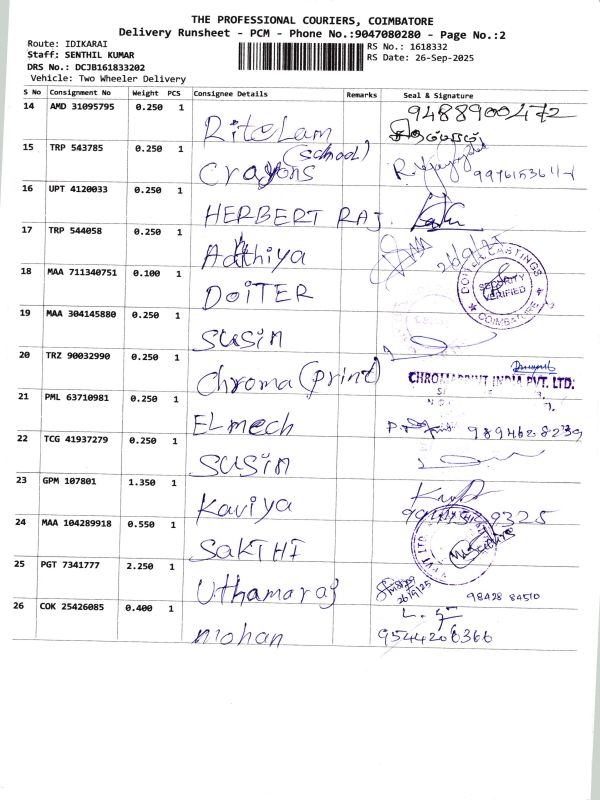 THE PROFESSIONAL COURIERS, COIMBATORE
Delivery Runsheet - PCM - Phone No.:9047080280 - Page No.:2
Route: IDIKARAI
RS No.: 1618332
Staff: SENTHIL KUMAR
RS Date: 26-Sep-2025
DRS No.: DCJB161833202
Vehicle: Two Wheeler Delivery
S No Consignment No Weight PCS Consignee Details Remarks Seal & Signature
14 AMD 31095795 0.250 1
9488900472
RiteLam
15 TRP 543785 0.250 1
(school)
Crayons
9976153641
16 UPT 4120033 0.250 1
HERBERT RAJ
17 TRP 544058 0.250 1
Adthiya
26/9/25
18 MAA 711340751 0.100 1
DOITER
CASTINGS
SECURITY
VERIFIED
COIMBATORE
19 MAA 304145880 0.250 1
SUSIM
20 TRZ 90032990 0.250 1
Chroma (print)
CHROMAPRINT INDIA PVT. LTD.
21 PML 63710981 0.250 1
ELmech
9894628239
22 TCG 41937279 0.250 1
SUSIM
23 GPM 107801 1.350 1
Kaviya
9325
24 MAA 104289918 0.550 1
SAKTHI
25 PGT 7341777 2.250 1
Uthamaraj
26/9/25
98428 84510
26 COK 25426085 0.400 1
mohan
9544206366